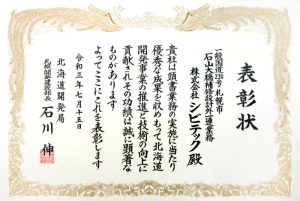 表彰状
一般国道230号 札幌市
石山大橋補修設計外一連業務
株式会社 シビテック 殿
貴社は頭書業務の実施に当たり
優秀な成果を収めもって北海道
開発事業の推進と技術の向上に
貢献されその功績は誠に顕著な
ものがあります
よってここにこれを表彰します
令和三年七月十五日
北海道開発局
札幌開発建設部長 石川 伸